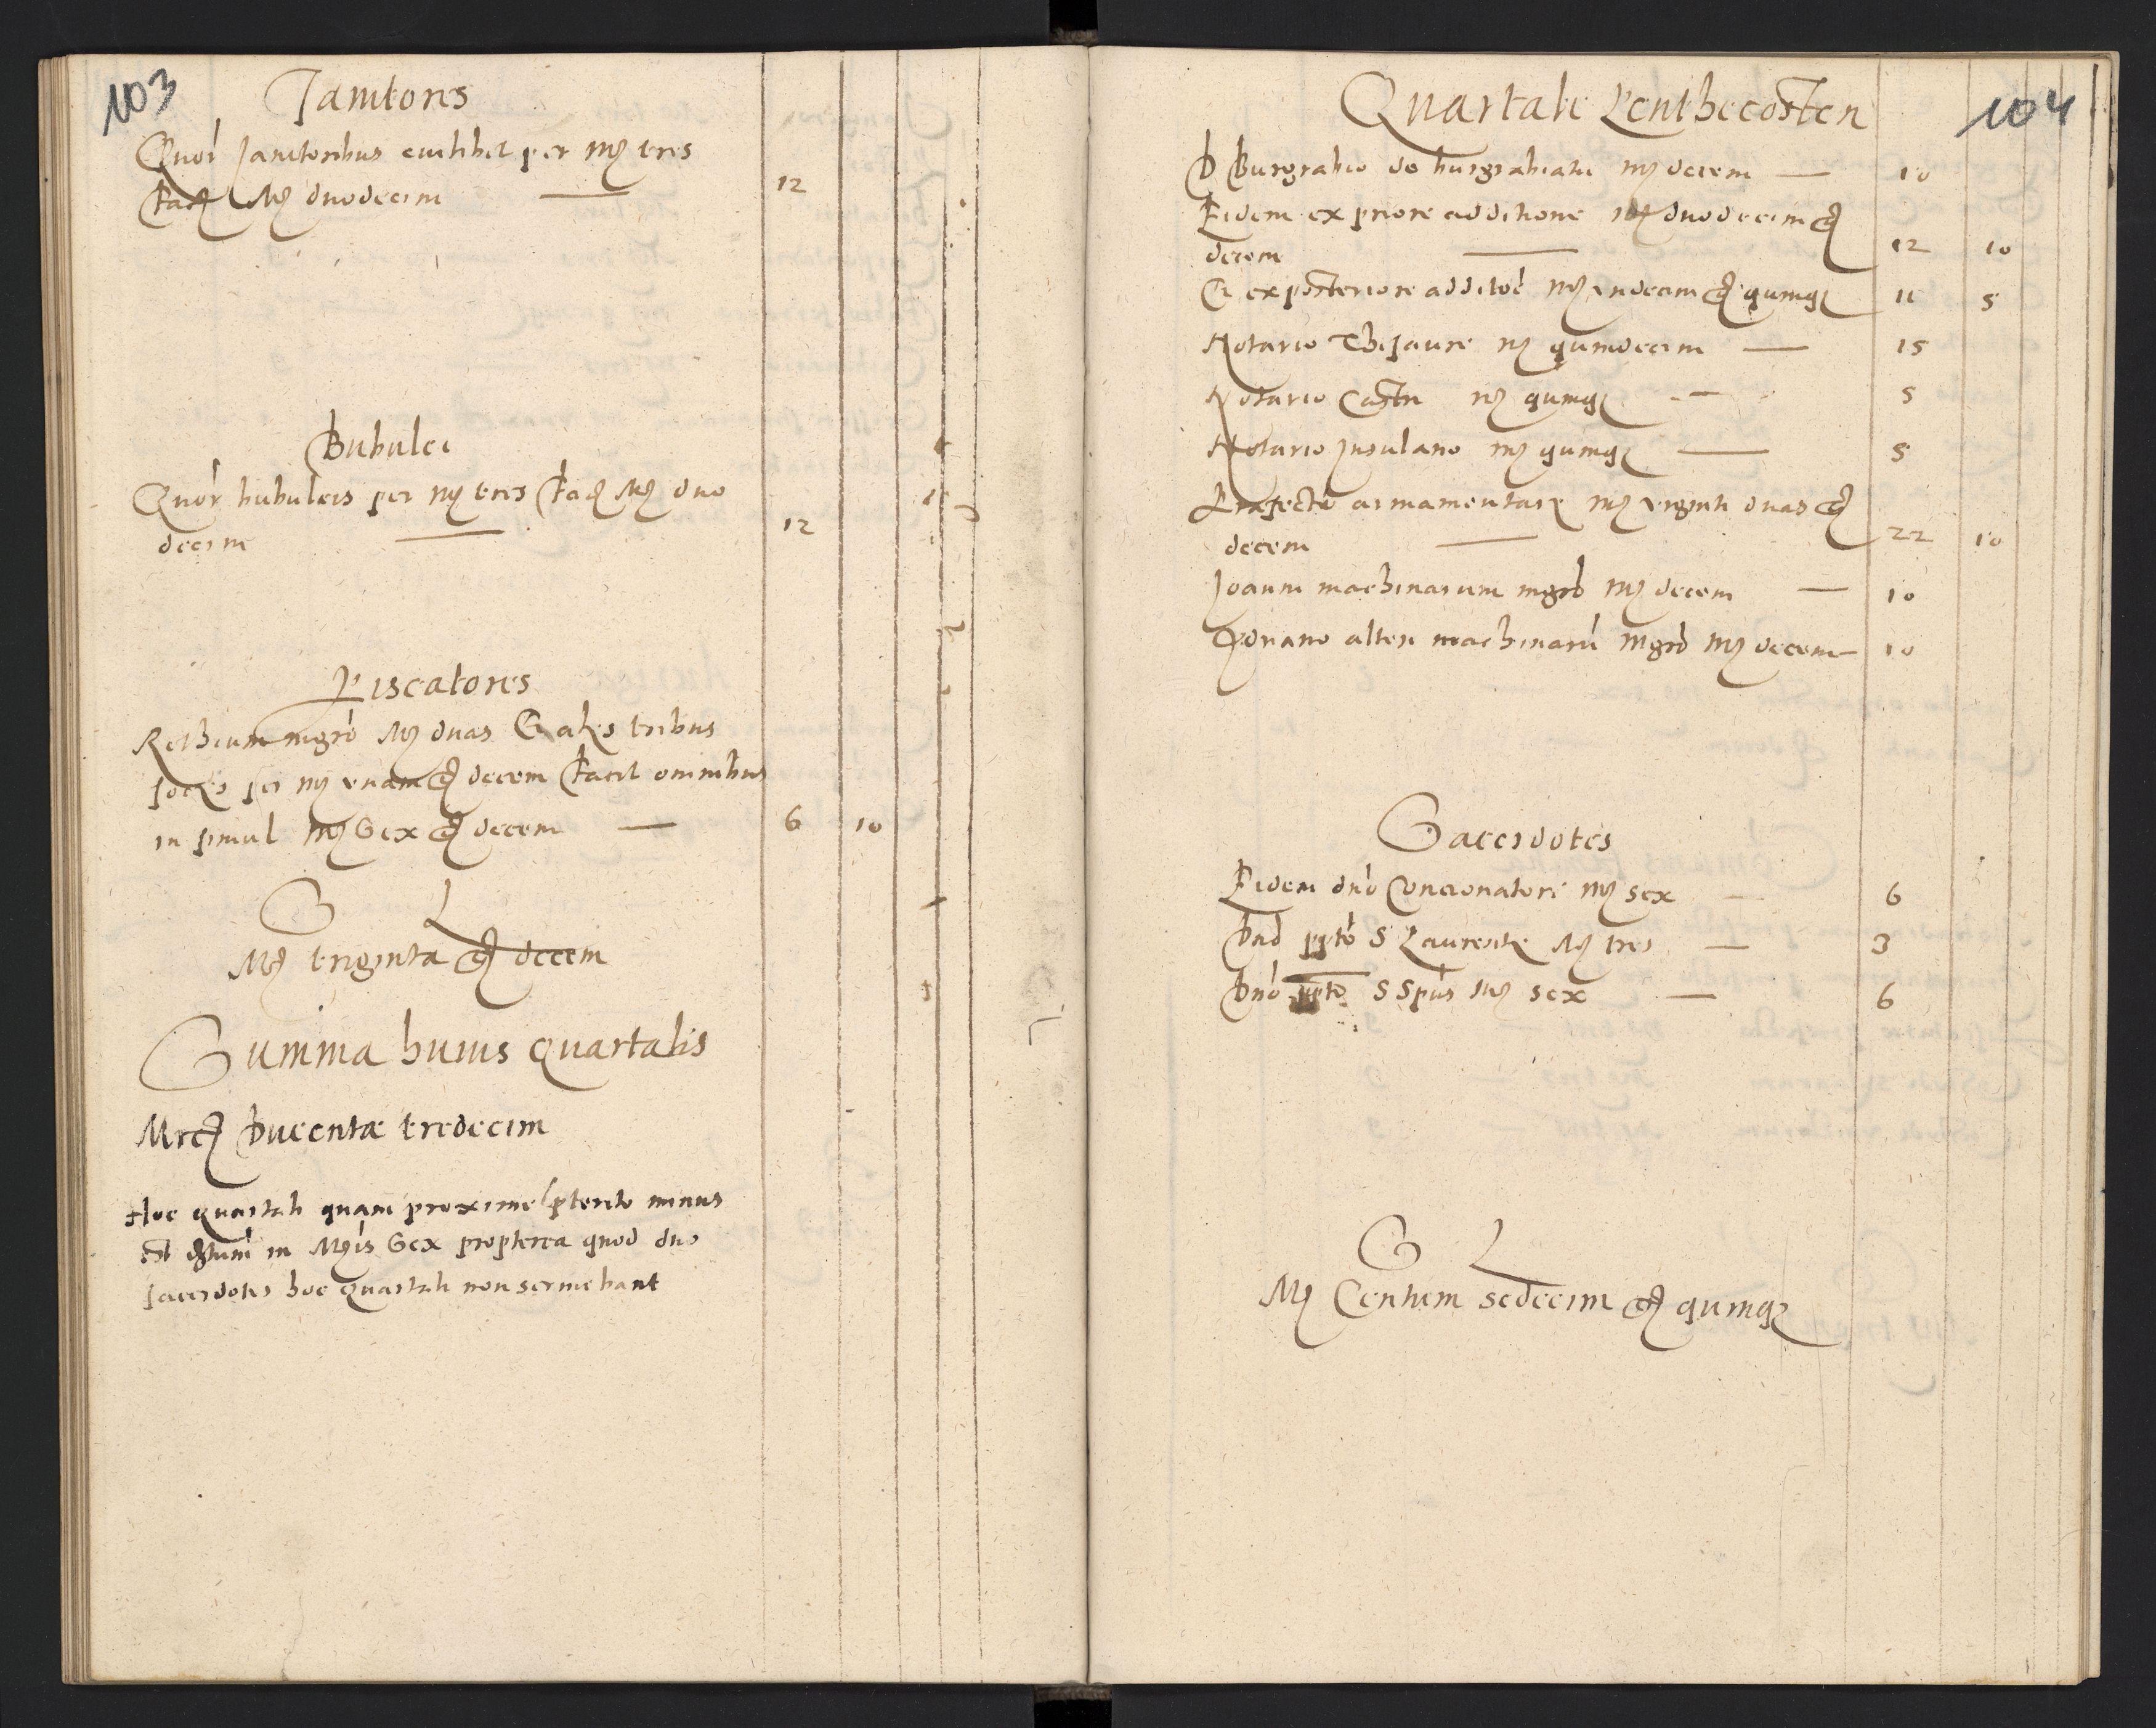 103
Janitores
Quor Janitoribus cuilibet per Mȝ tres
facȝ Mȝ duodecim — 12
Bubulci
Quor bubulcis per mȝ tres facȝ Mȝ duo
decim — 12
Piscatores
Rethium mgrō Mȝ duas Et alijs tribus
socijs per mȝ unam ȝ decem facit omnibus
in simul Mȝ Sex ȝ decem — 6 10
S L
Mȝ triginta ȝ decem
Summa huius quartalis
Mrcȝ Ducentæ tredecim
Hoc quartali quam proxime pterito minus
est in Mȝis Sex propterea quod duo
sacerdotes hoc Quartali non serviebant
104
Quartale Penthecosten
D Burgrabio de burgrabiatu mȝ decem — 10
Eidem ex priore additione Mȝ duodecim ȝ
decem — 12 10
Et ex posteriore additōe Mȝ undecim ȝ quinqȝ 11 5
Notario Thesauri mȝ quindecim — 15
Notario Castri mȝ quinqȝ — 5
Notario Insulano mȝ quinqȝ — 5
Præfecto armamentarij Mȝ viginti duas ȝ
decem — 22 10
Joanni machinarum mgrō Mȝ decem — 10
alteri machinarū Mgrō Mȝ decem — 10
Sacerdotes
Eidem dnō Concionatori Mȝ sex — 6
Dnō pptō S Laurentij Mȝ tres — 3
Dnō pptō S Spūs Mȝ sex — 6
S L
Mȝ Centum sedecim ȝ quinqȝ